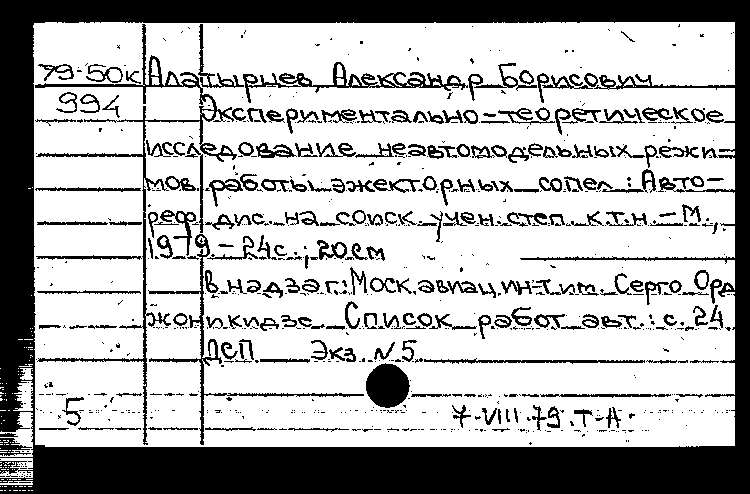 79-50к Алатырцев, Александр Борисович
994 Экспериментально-теоретическое
исследование неавтомодельных режи=
мов работы эжекторных сопел : Авто-
реф. дис. на соиск. учен. степ. к.т.н. - М.,
1979. - 24с. ; 20см
В надзаг: Моск. авиац. ин-т им. Серго Орд
жоникидзе. Список работ авт.: с. 24
ДСП Экз. N 5
5 7-VIII.79. Т-А.